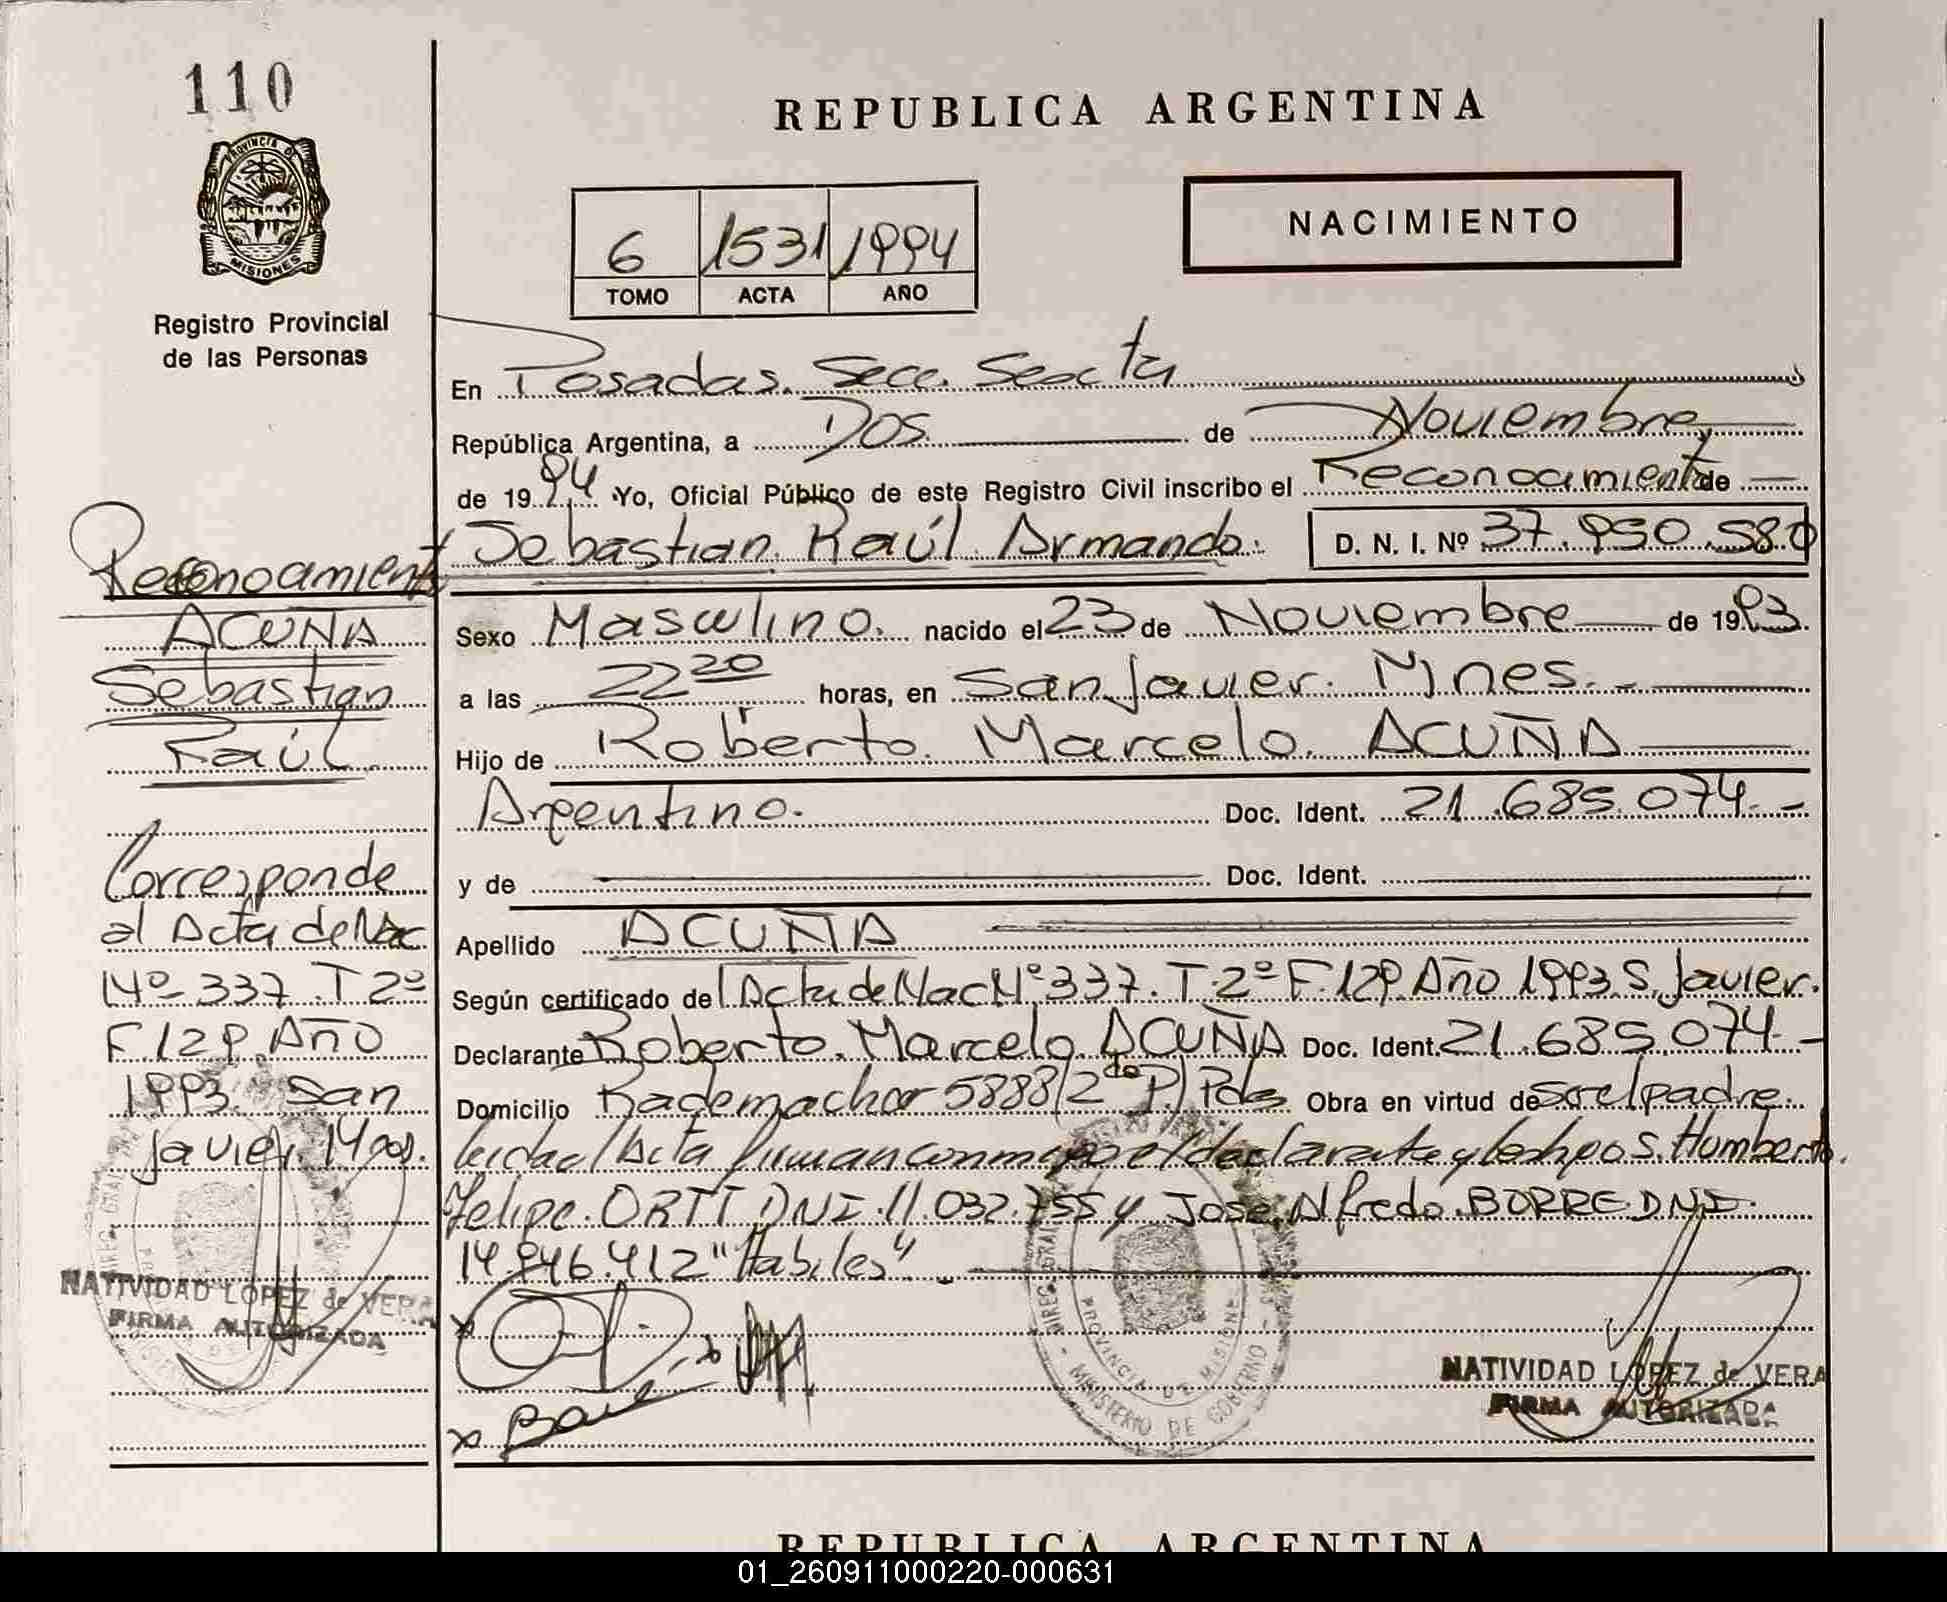 110
PROVINCIA DE
MISIONES
Registro Provincial
de las Personas
REPUBLICA ARGENTINA
6 1531 1994
TOMO ACTA AÑO
NACIMIENTO
En Posadas. Secc. Sexta
República Argentina, a Dos de Noviembre
de 1994 Yo, Oficial Público de este Registro Civil inscribo el Reconocimiento de
Sebastian Raúl Armando. D. N. I. Nº 37.950.580
Sexo Masculino. nacido el 23 de Noviembre de 1993.
a las 22 20 horas, en San Javier. Mnes.
Hijo de Roberto. Marcelo. ACUÑA
Argentino. Doc. Ident. 21.685.074.-
y de Doc. Ident.
Apellido ACUÑA
Según certificado del Acta de Nac Nº 337. T.2º F.129. Año 1993 S. Javier.
Declarante Roberto. Marcelo. ACUÑA Doc. Ident. 21.685.074.-
Domicilio Rademacher 5888/2do P./Pdas Obra en virtud de ser el padre.
leida el Acta firman conmigo el declarante y testigos. Humberto
Felipe. ORTT DNI. 11.032.755 y José Alfredo. BORRE DNI.
14.946.412 "Habiles"
Reconocimiento
ACUÑA
Sebastian
Raúl
Corresponde
al Acta de Nac
Nº 337. T 2º
F.129. Año
1993. San
Javier.
NATIVIDAD LOPEZ de VERA
FIRMA AUTORIZADA
PROVINCIA DE MISIONE
MINISTERIO DE GOBIERNO
NATIVIDAD LOPEZ de VERA
FIRMA AUTORIZADA
REPUBLICA ARGENTINA
01_260911000220-000631